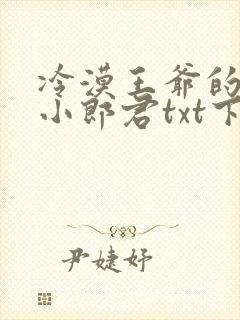 冷漠王爷的
小郎君txt下
尹婕妤